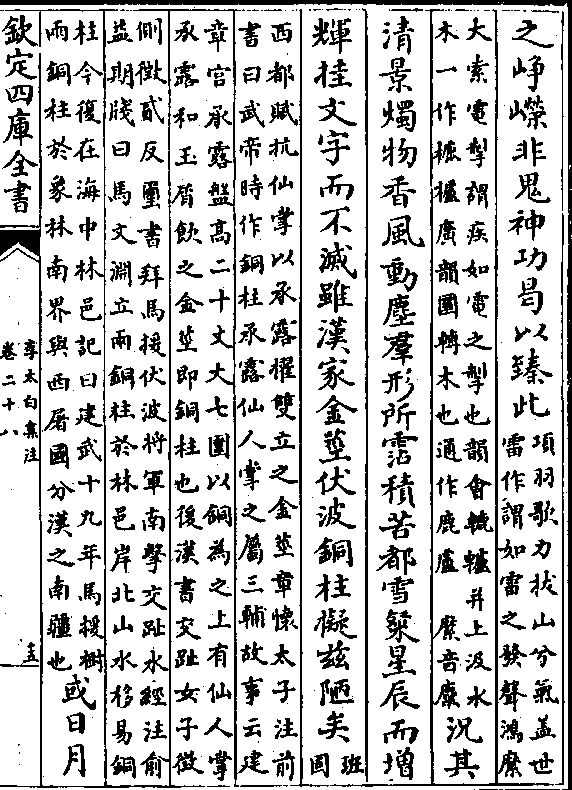 之崢嶸非鬼神功曷以臻此項羽歌力拔山兮氣蓋世
雷作謂如雷之發聲鴻縻
大索電掣謂疾如電之掣也韻會轆轤井上汲水
木一作樚櫨廣韻圓轉木也通作鹿盧 縻音糜況其
清景燭物香風動塵羣形所霑積苦都雪粲星辰而增
輝挂文字而不滅雖漢家金莖伏波銅柱擬茲陋矣班
固
西都賦抗仙掌以承露擢雙立之金莖章懷太子注前
書曰武帝時作銅柱承露仙人掌之屬三輔故事云建
章宮承露盤高二十丈大七圍以銅為之上有仙人掌
承露和玉屑飲之金莖即銅柱也後漢書交趾女子徵
側徵貳反璽書拜馬援伏波將軍南擊交趾水經注俞
益期牋曰馬文淵立兩銅柱於林邑岸北山水移易銅
柱今復在海中林邑記曰建武十九年馬援樹
兩銅柱於象林南界與西屠國分漢之南疆也或日月
欽定四庫全書
李太白集注
卷二十八
十五